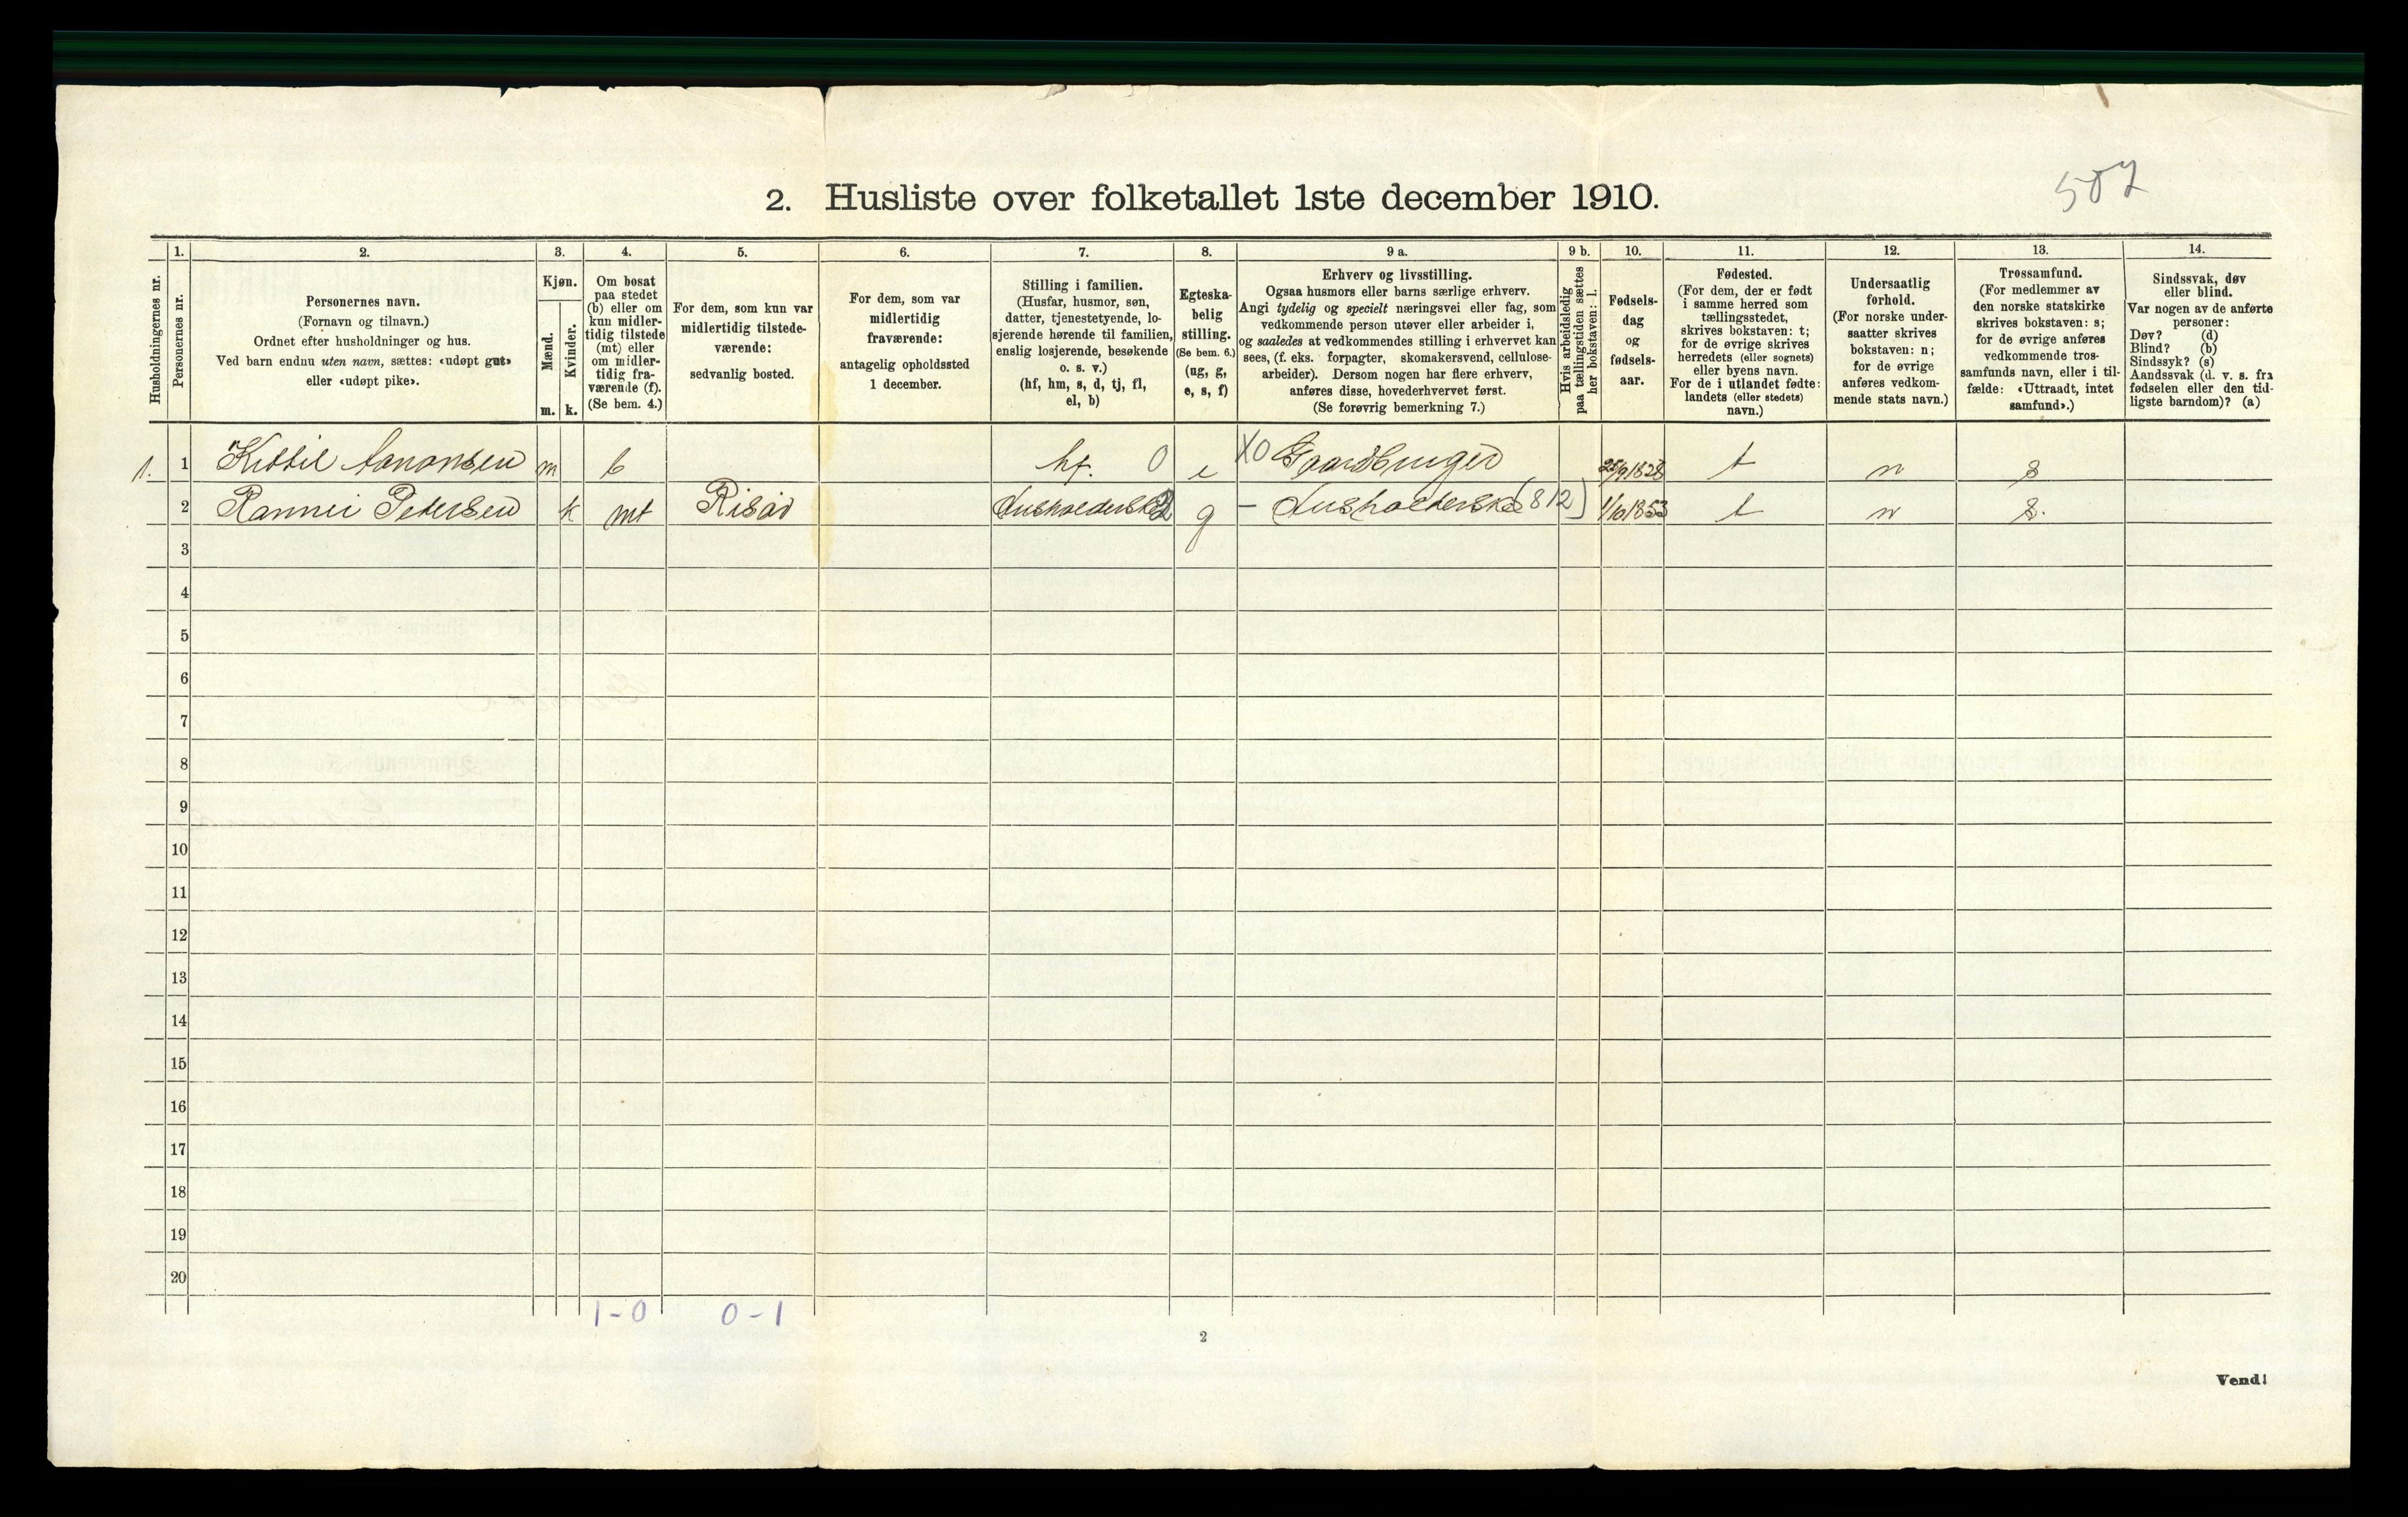 507
2. Husliste over folketallet 1ste december 1910.
1. 2. 3. 4. 5. 6. 7. 8. 9 a. 9 b. 10. 11. 12. 13. 14.
Husholdningernes nr.
Personernes nr.
Personernes navn.
(Fornavn og tilnavn.)
Ordnet efter husholdninger og hus.
Ved barn endnu uten navn, sættes: «udøpt gut»
eller «udøpt pike».
Kjøn.
Mænd.
Kvinder.
m. k.
Om bosat
paa stedet
(b) eller om
kun midler-
tidig tilstede
(mt) eller
om midler-
tidig fra-
værende (f).
(Se bem. 4.)
For dem, som kun var
midlertidig tilstede-
værende:
sedvanlig bosted.
For dem, som var
midlertidig
fraværende:
antagelig opholdssted
1 december.
Stilling i familien.
(Husfar, husmor, søn,
datter, tjenestetyende, lo-
sjerende hørende til familien,
enslig losjerende, besøkende
o. s. v.)
(hf, hm, s, d, tj, fl,
el, b)
Egteska-
belig
stilling.
(Se bem. 6.)
(ug, g,
e, s, f)
Erhverv og livsstilling.
Ogsaa husmors eller barns særlige erhverv.
Angi tydelig og specielt næringsvei eller fag, som
vedkommende person utøver eller arbeider i,
og saaledes at vedkommendes stilling i erhvervet kan
sees, (f. eks. forpagter, skomakersvend, cellulose-
arbeider). Dersom nogen har flere erhverv,
anføres disse, hovederhvervet først.
(Se forøvrig bemerkning 7.)
Hvis arbeidsledig
paa tællingstiden sættes
her bokstaven: l.
Fødsels-
dag
og
fødsels-
aar.
Fødested.
(For dem, der er født
i samme herred som
tællingsstedet,
skrives bokstaven: t;
for de øvrige skrives
herredets (eller sognets)
eller byens navn.
For de i utlandet fødte:
landets (eller stedets)
navn.)
Undersaatlig
forhold.
(For norske under-
saatter skrives
bokstaven: n;
for de øvrige
anføres vedkom-
mende stats navn.)
Trossamfund.
(For medlemmer av
den norske statskirke
skrives bokstaven: s;
for de øvrige anføres
vedkommende tros-
samfunds navn, eller i til-
fælde: «Uttraadt, intet
samfund».)
Sindssvak, døv
eller blind.
Var nogen av de anførte
personer:
Døv? (d)
Blind? (b)
Sindssyk? (s)
Aandssvak (d. v. s. fra
fødselen eller den tid-
ligste barndom)? (a)
1. 1 Kittil Aanonsen m b hf. 0 e X0 Gaardbruger 1828 t n s
2 Rannei Petersen k mt Risør Husholderske g - Husholderske (812) 1/10 1853 t n s.
3
4
5
6
7
8
9
10
11
12
13
14
15
16
17
18
19
20
1-0 0-1
2
Vend!